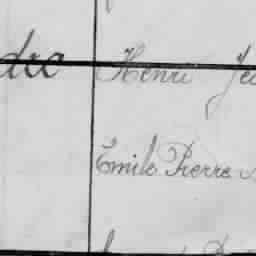 dre Henri Je
Emile Pierre